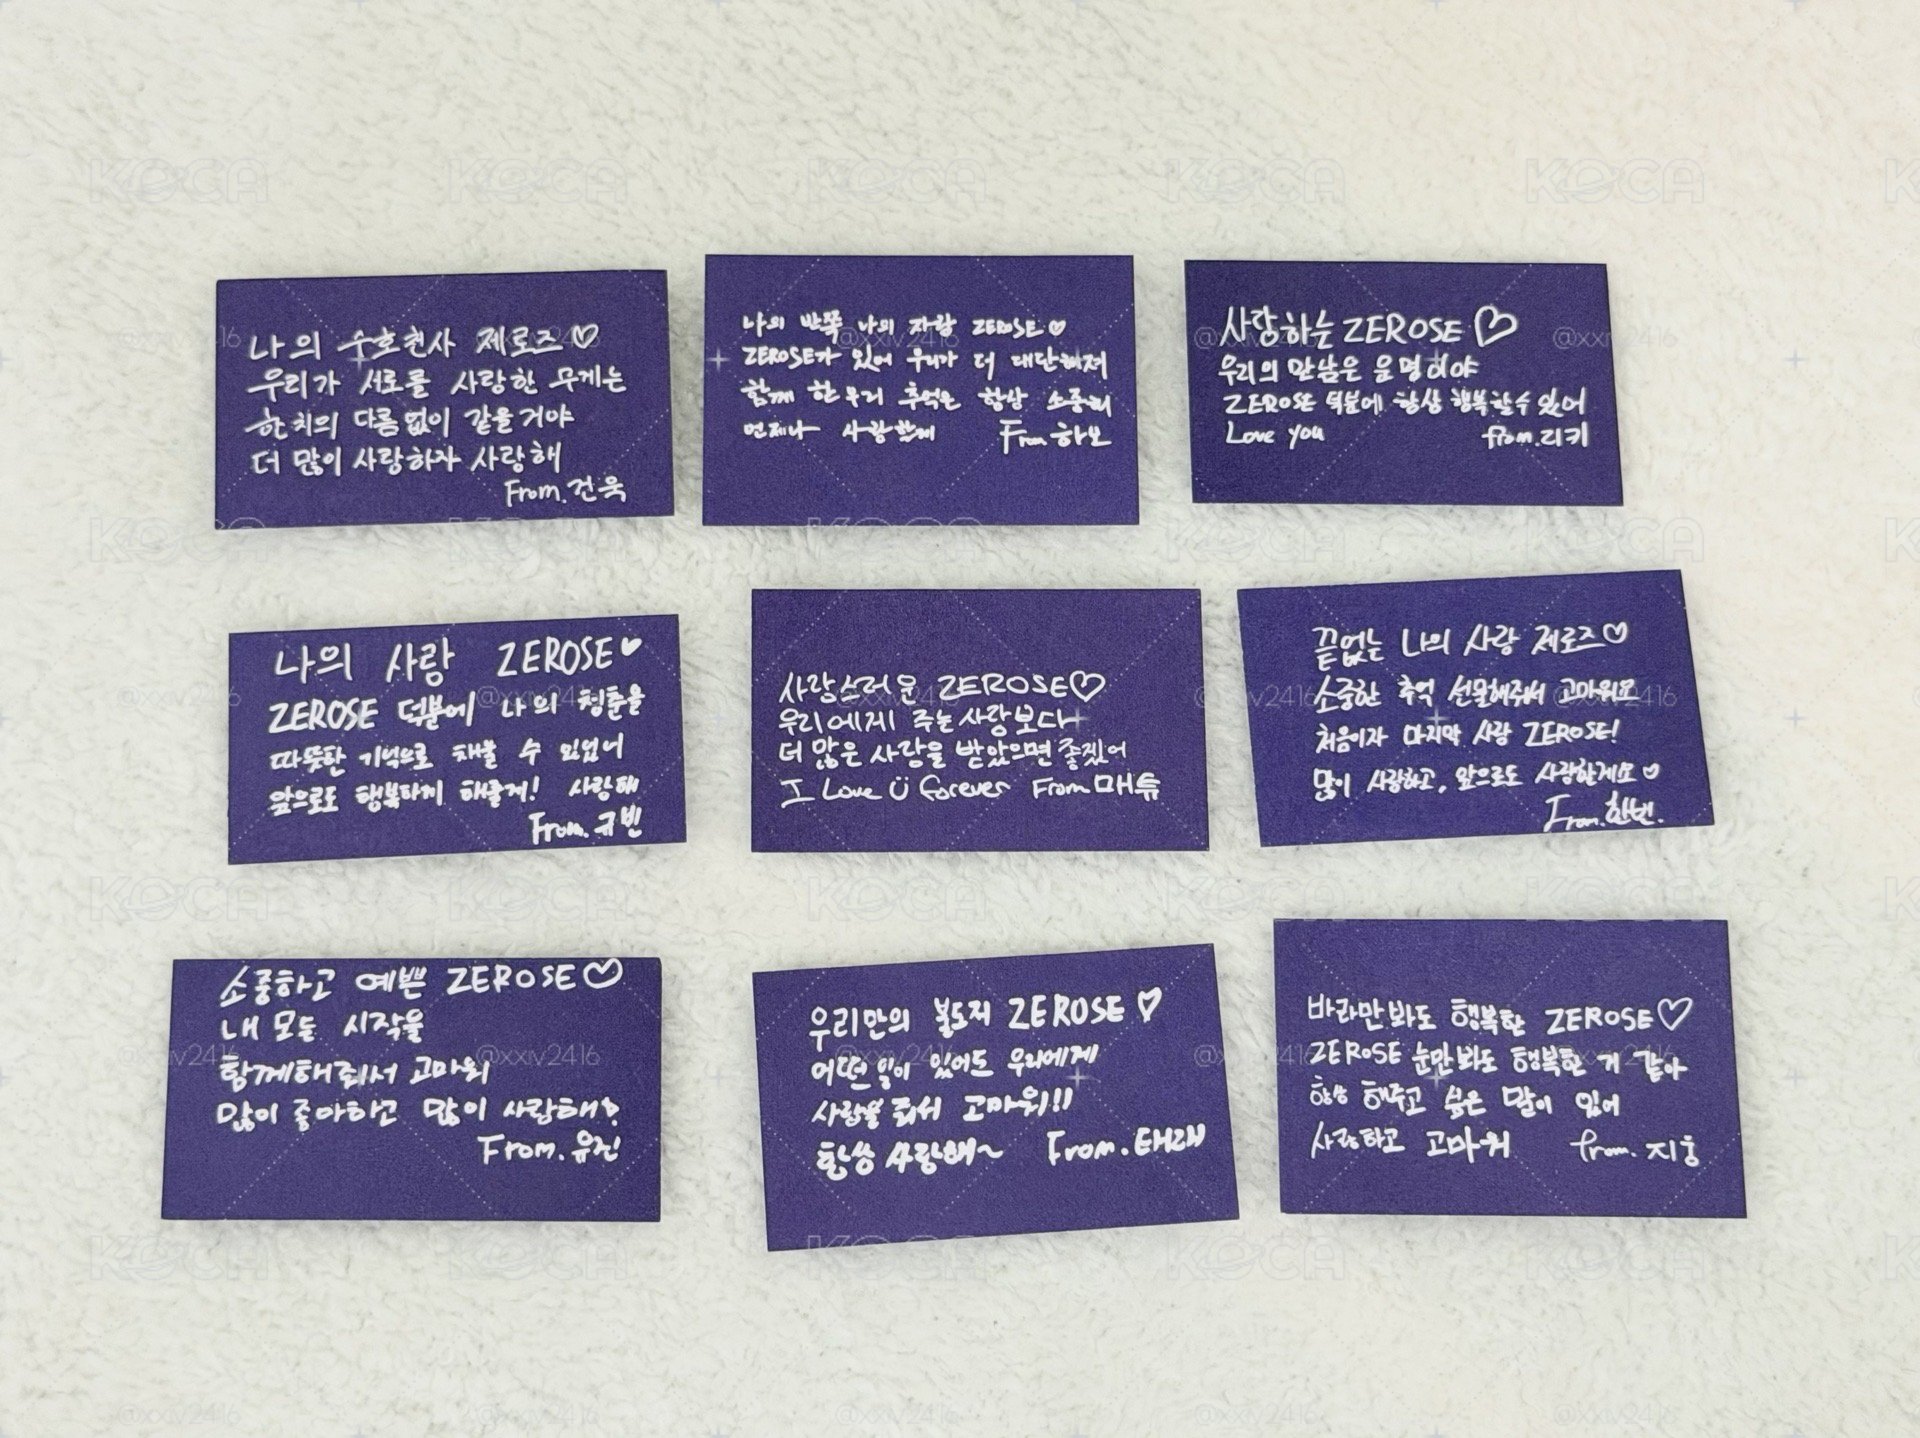 나의 수호천사 제로즈♡
우리가 서로를 사랑한 무게는
한치의 다름없이 같을거야
더 많이 사랑하자 사랑해
From.건욱
나의 반쪽 나의 자랑 ZEROSE♡
ZEROSE가 있어 우리가 더 대단해져
함께 한 우리 추억은 항상 소중해
언제나 사랑할게 From.하오
사랑하는 ZEROSE♡
우리의 만남은 운명이야
ZEROSE 덕분에 항상 행복할수 있어
Love you from.리키
나의 사랑 ZEROSE♥
ZEROSE 덕분에 나의 청춘을
따뜻한 기억으로 채울 수 있었어
앞으로도 행복하게 해줄게! 사랑해
From.규빈
사랑스러운 ZEROSE♡
우리에게 주는 사랑보다
더 많은 사랑을 받았으면 좋겠어
I Love Ü forever From 매튜
끝없는 나의 사랑 제로즈♡
소중한 추억 선물해줘서 고마워요
처음이자 마지막 사랑 ZEROSE!
많이 사랑하고, 앞으로도 사랑할게요♡
From.한빈.
소중하고 예쁜 ZEROSE♡
내 모든 시작을
함께해줘서 고마워
많이 좋아하고 많이 사랑해!
From.유진
우리만의 복도지 ZEROSE♡
어떤 일이 있어도 우리에게
사랑을 줘서 고마워!!
항상 사랑해~ From.태래
바라만봐도 행복한 ZEROSE♡
ZEROSE 눈만봐도 행복한 거 같아
항상 해주고 싶은 말이 있어
사랑하고 고마워 from.지웅
KOCA
@xxiv2416